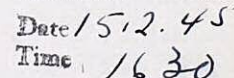 Date 15.2.45
Time 1630